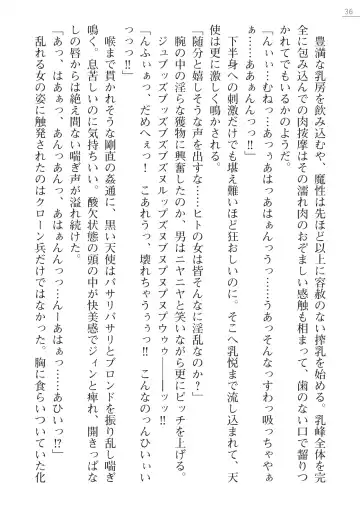 36
豊満な乳房を飲み込むや、魔性は先ほど以上に容赦のない搾乳を始める。乳峰全体を完
全に包み込んでの肉按摩はその濡れ肉のおぞましい感触も相まって、歯のない口で齧りつ
かれてでもいるかのようだ。
「んぃぃ……むねっ…あぅっあはっあはぁんっうっ……うあっそんなっすわっ吸っちゃやぁ
…ああぁんんっっ!!」
下半身への刺激だけでも堪え難いほど狂おしいのに、そこへ乳悦まで流し込まれて、天
使は更に激しく鳴かされる。
「随分と嬉しそうな声を出すな……ヒトの女は皆そんなに淫乱なのか?」
腕の中の淫らな獲物に興奮したのか、男はニヤニヤと笑いながら更にピッチを上げる。
ジュブッズブッズブッズブズヌルップズヌプヌプヌプウゥゥ―――ッッ!
「んふぃぁっ、だめへぇっ! こあれちゃうっ、壊れちゃうぅぅっ!! こんなのっひいぃい
っっっ!!」
喉まで貫かれそうな剛直の姦通に、黒い天使はバサリバサリとブロンドを振り乱し喘ぎ
鳴く。息苦しいのに気持ちいい。酸欠状態の頭の中が快美感でジィンと痺れ、開きっぱな
しの唇からは絶え間ない喘ぎ声が溢れ続けた。
「あっっ、はあぁっっ、あんっあんっっ、あはぁんんっっ…んーあはぁっっ…あひいっっ!?」
乱れる女の姿に触発されたのはクローン兵だけではなかった。胸に食らいついていた化